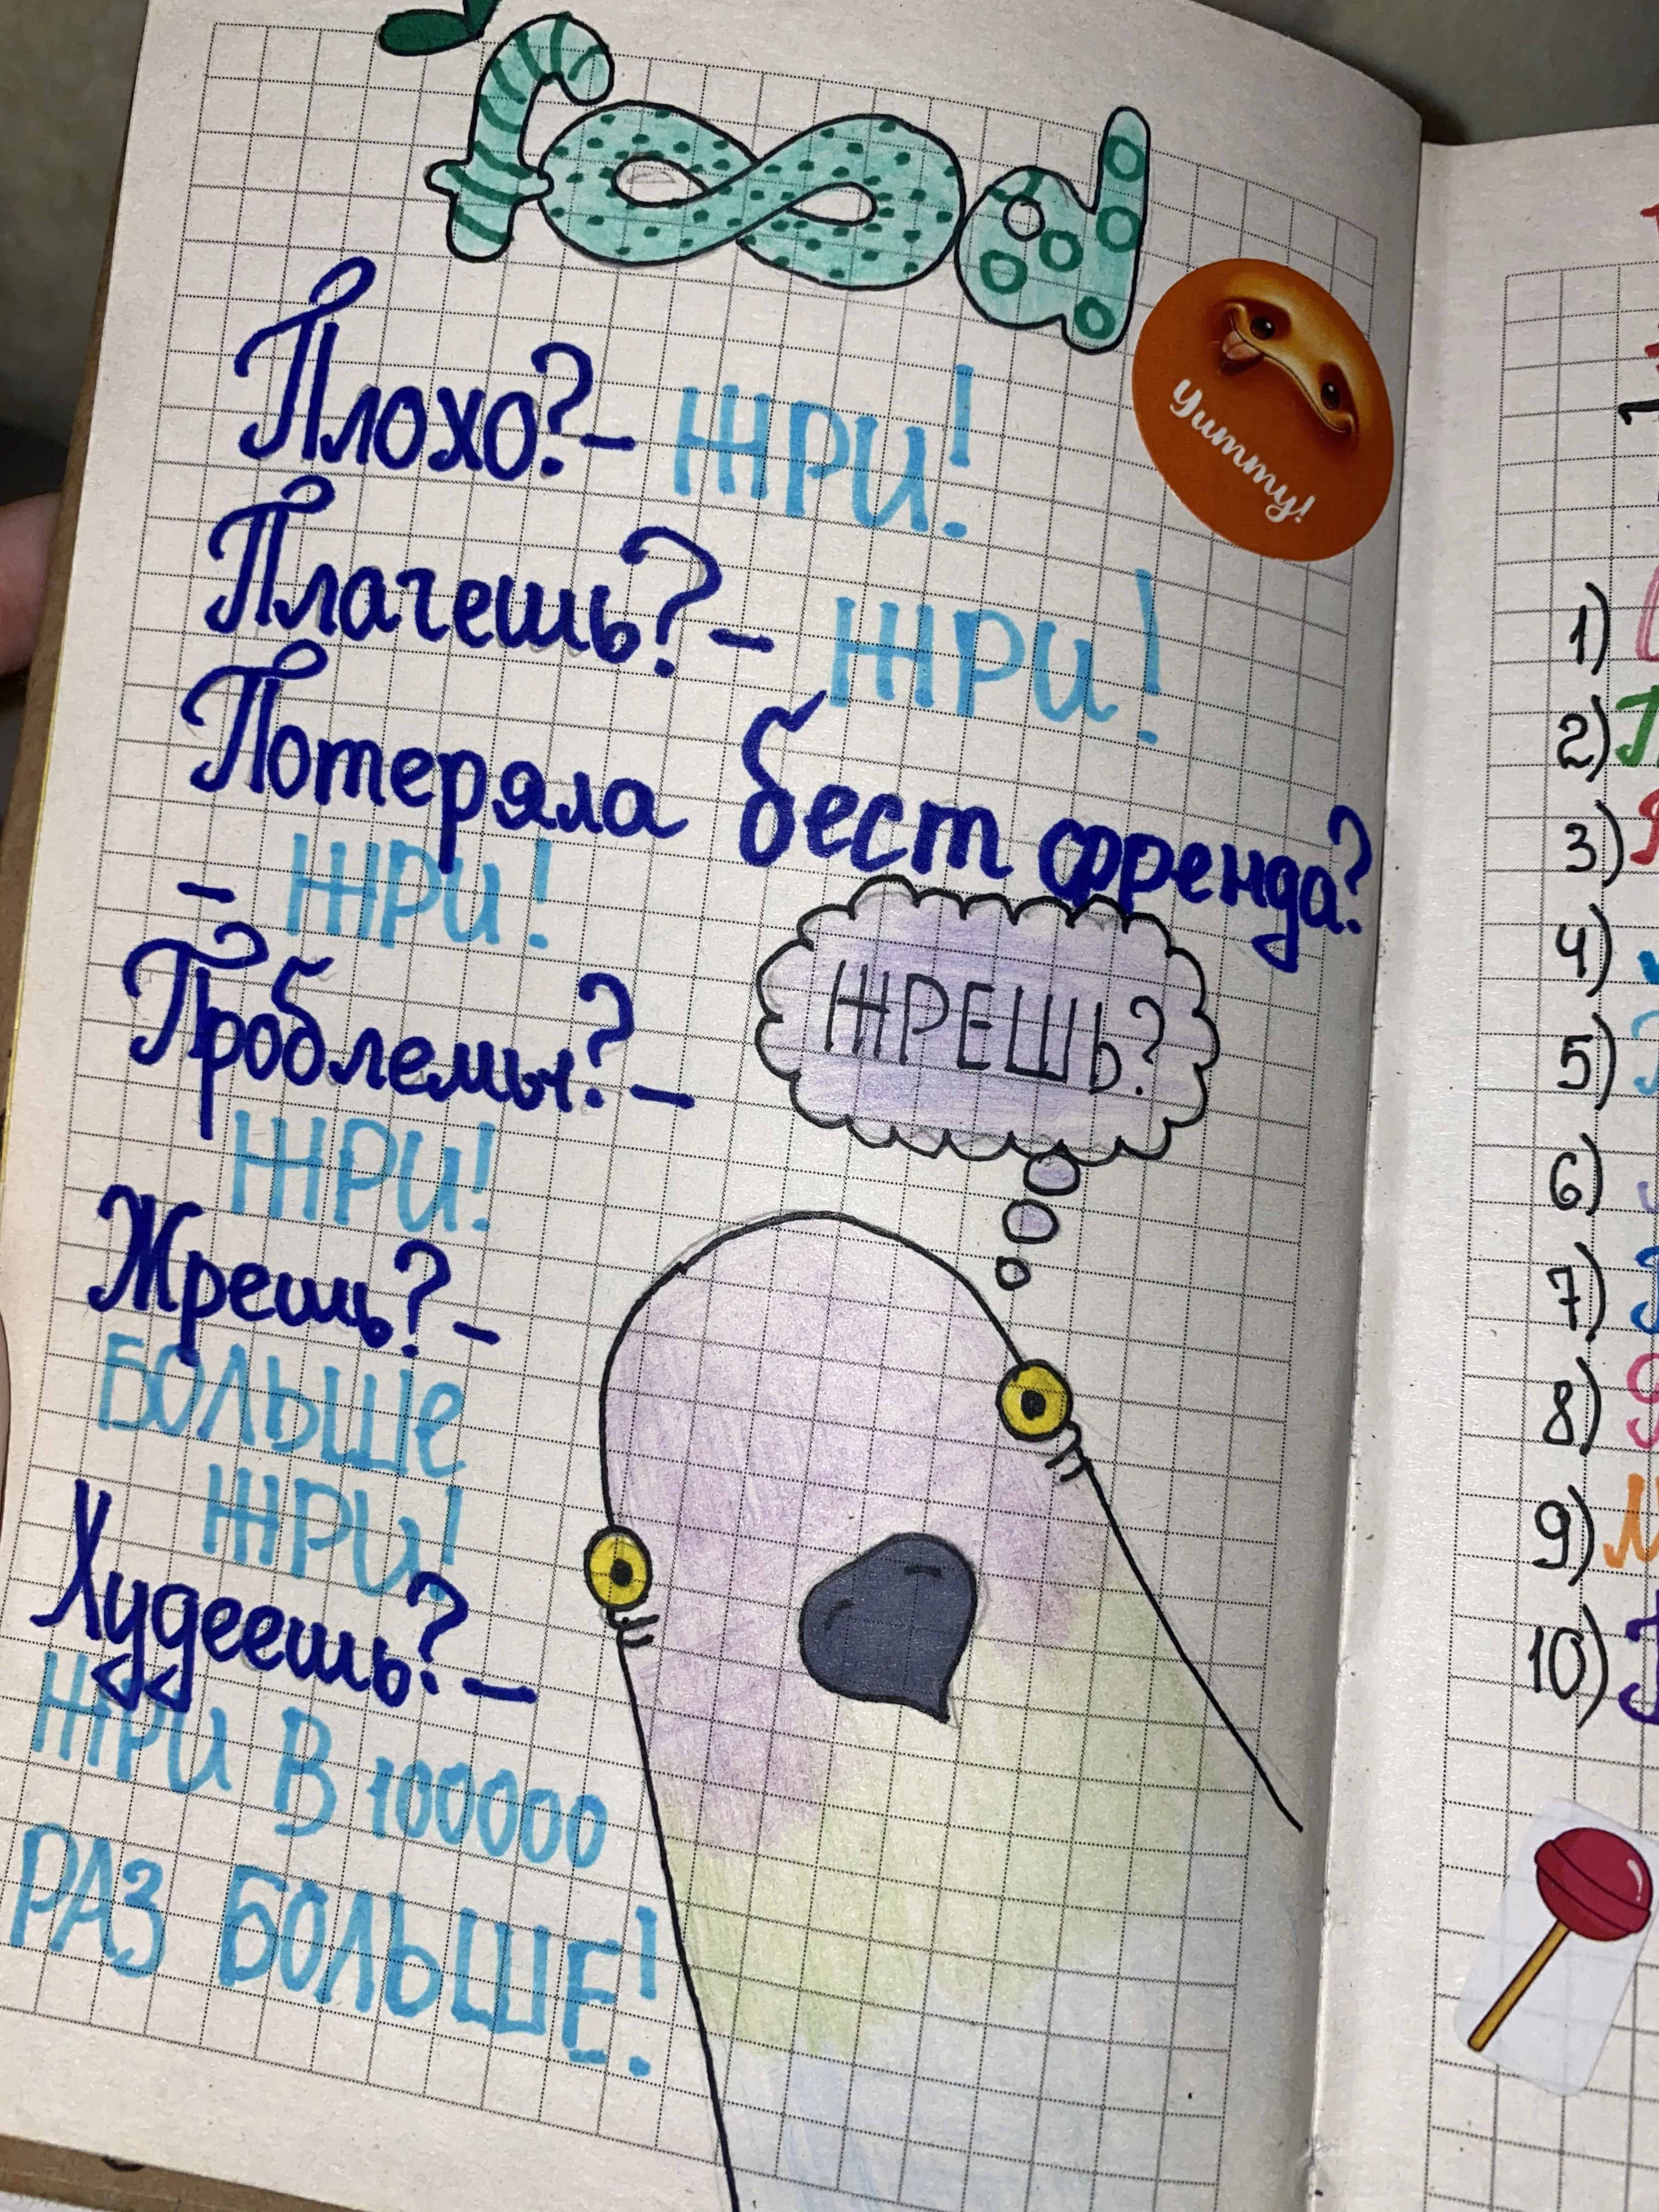 food
Yummy!
Плохо? - ЖРИ!
Плачешь? - ЖРИ!
Потеряла бест френда?
- ЖРИ!
Проблемы? -
ЖРИ!
Жрешь? -
БОЛЬШЕ
ЖРИ!
Худеешь? -
ЖРИ В 100000
РАЗ БОЛЬШЕ!
ЖРЕШЬ?
1)
2)
3)
4)
5)
6)
7)
8)
9)
10)